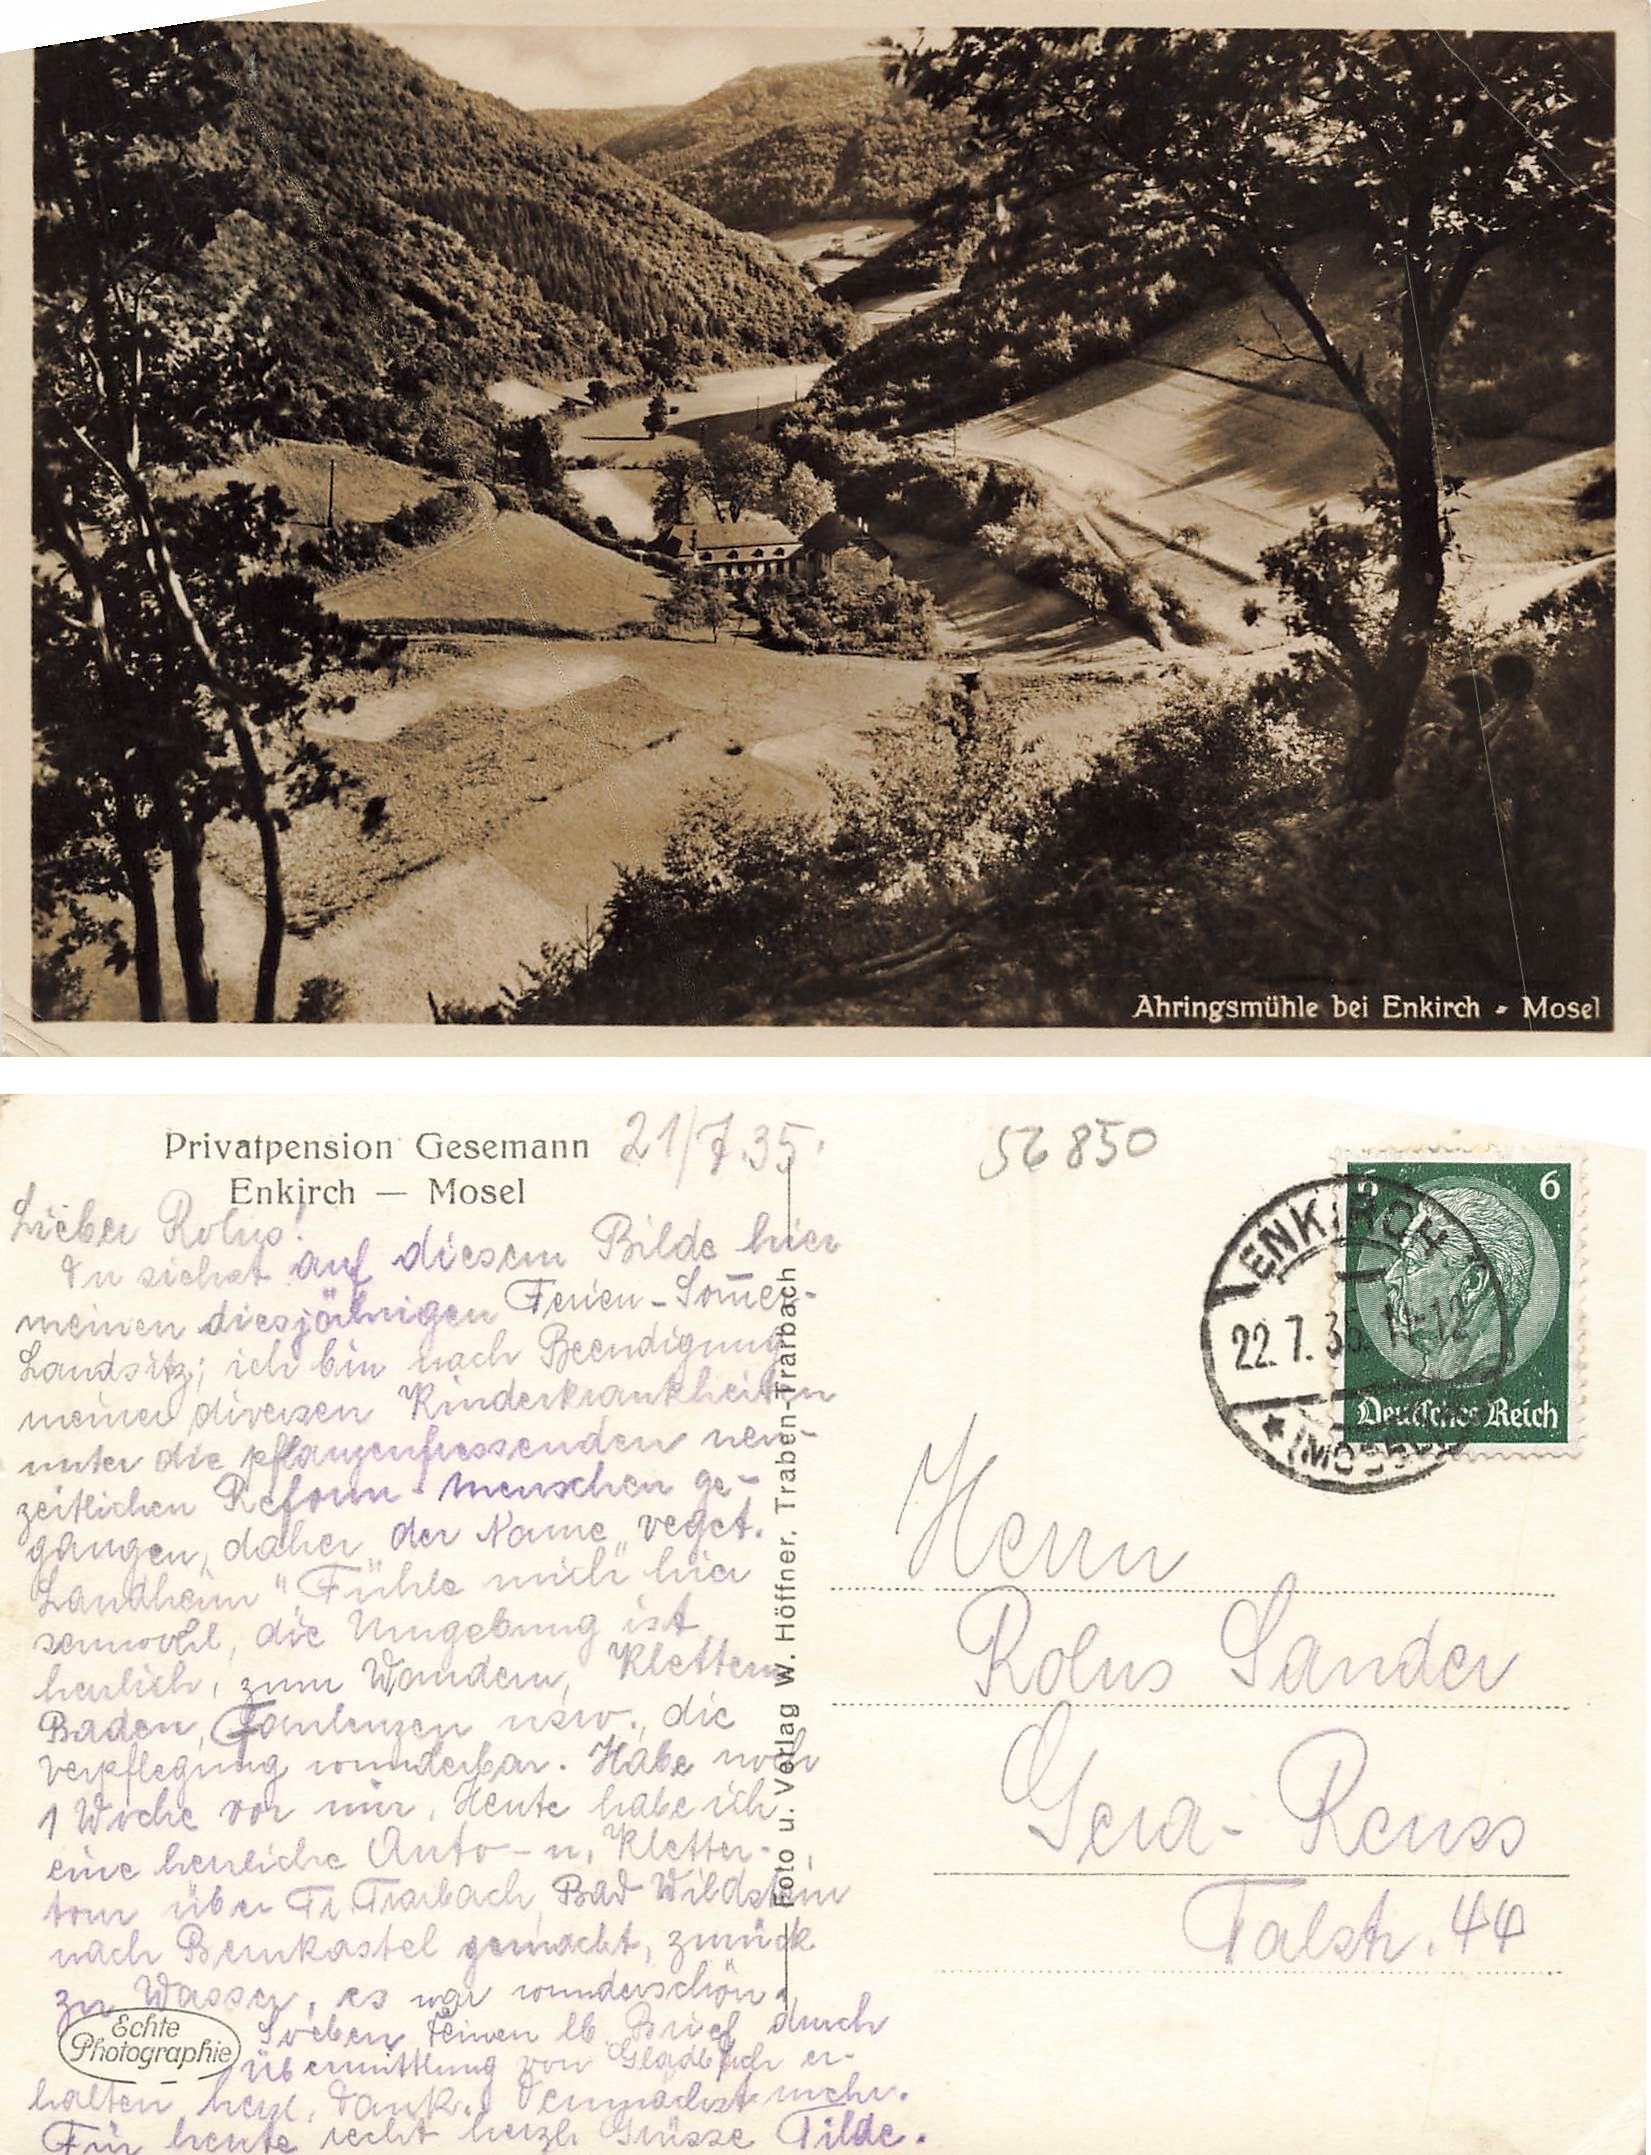 Ahringsmühle bei Enkirch - Mosel
Privatpension Gesemann
Enkirch — Mosel
21/7.35.
56850
Lieber Rolus!
Du siehst auf diesem Bilde hier
meinen diesjährigen Ferien-Som̅er-
Landsitz; ich bin nach Beendigung
meiner diversen Kinderkrankheiten
unter die pflanzenfressenden neu-
zeitlichen Reform-menschen ge-
gangen, daher der Name „veget.
Landheim“. Fühle mich hier
sauwohl, die Umgebung ist
herrlich, zum Wandern, Klettern
Baden, Faulenzen usw., die
Verpflegung wunderbar. Habe noch
1 Woche vor mir. Heute habe ich
eine herrliche Auto- u. Kletter-
tour über Tr. Trarbach, Bad Wildstein
nach Bernkastel gemacht, zurück
zu Wasser, es war wunderschön.
Soeben Deinen lb. Brief durch
Übermittlung von Gladbach er-
halten, herzl. Dank. Demnächst mehr.
Für heute recht herzl. Grüsse Tilde.
Echte
Photographie
Foto u. Verlag W. Höffner, Traben-Trarbach
ENKIRCH
22.7.35.11-12
* (MOSEL)
6
Deutsches Reich
Herrn
Rolus Sander
Gera-Reuss
Talstr. 44